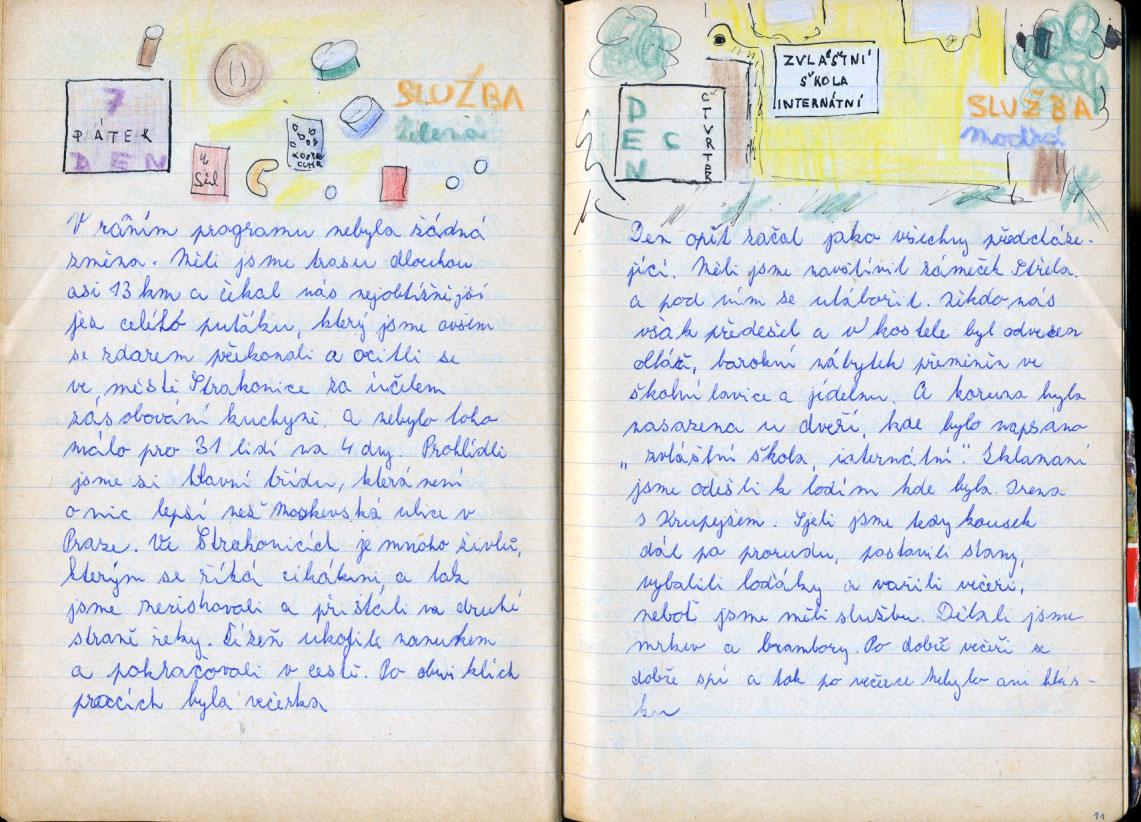 7
PÁTEK
DEN
SLUŽBA
zelená
Sůl
KOSTKY
CUKR
V raním programu nebyla žádná
změna. Měli jsme trasu dlouhou
asi 13 km a čekal nás nejobtížnější
jez celého puťáku, který jsme ovšem
se zdarem překonali a ocitli se
ve městě Strakonice za účelem
zásobování kuchyně. A nebylo toho
málo pro 31 lidí na 4 dny. Prohlídli
jsme si hlavní třídu, která není
o nic lepší než Moskevská ulice v
Praze. Ve Strakonicích je mnoho živlů,
kterým se říká cikáni, a tak
jsme neriskovali a přistáli na druhé
straně řeky. Žízeň ukojile nanukem
a pokračovali v cestě. Po obvyklích
pracích byla večerka
DEN
C
ČTVRTEK
ZVLÁŠTNÍ
ŠKOLA
INTERNÁTNÍ
SLUŽBA
modrá
Den opět začal jako všechny předcháze-
jící. Měli jsme navštívit zámeček Střela.
a pod ním se utábořit. Nikdo nás
však předešel a v kostele byl odvezen
oltář, barokní nábytek přeměnin ve
školní lavice a jídelnu. A koruna byla
nasazena u dveří, kde bylo napsano
„zvláštní škola, internátní". Zklamaní
jsme odešli k lodím kde byla Irena
s Krupejsem. Sjeli jsme tedy kousek
dál po proudu, postavili stany,
vybalili loďáky a vařili večeři,
neboť jsme měli službu. Dělali jsme
mrkev a brambory. Po dobré večeři se
dobře spí a tak po večerce nebylo ani hlás-
ku
11